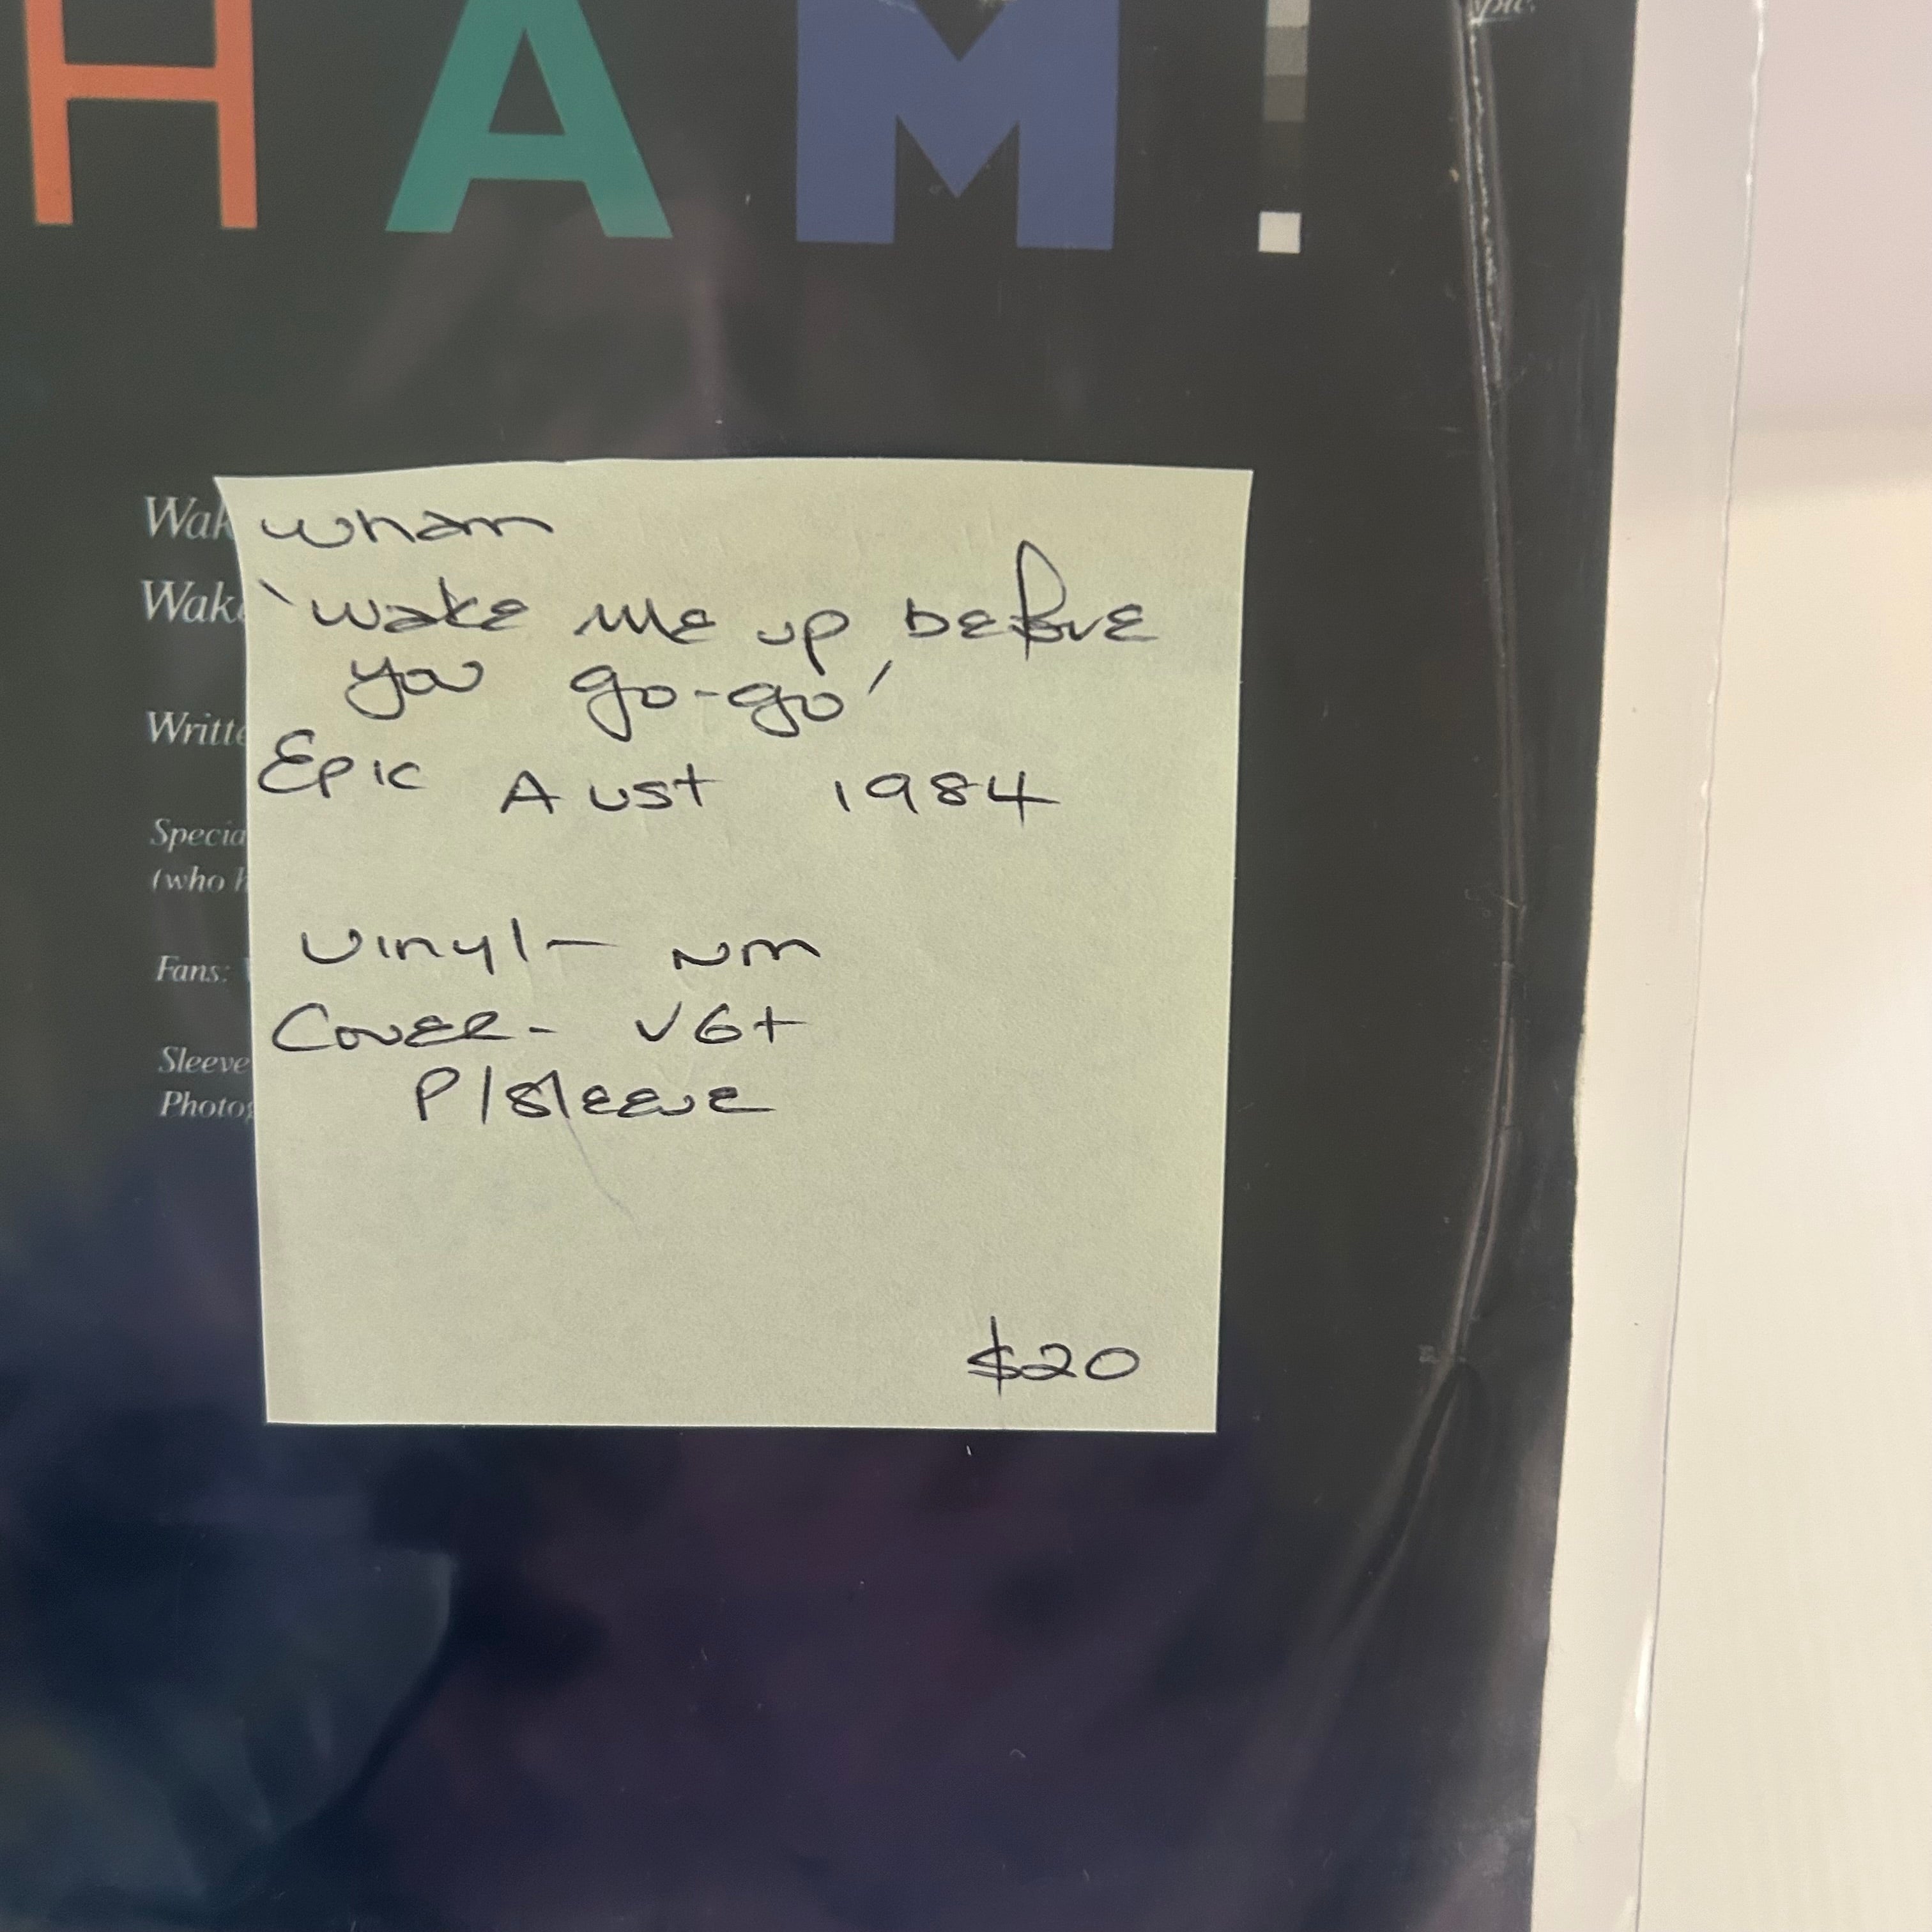 HAM!
pic.
Wak
Wake
Writte
Specia
(who h
Fans:
Sleeve
Photog
Wham
'Wake me up before
you go-go'
Epic Aust 1984
Vinyl - NM
Cover - VG+
P/Sleeve
$20